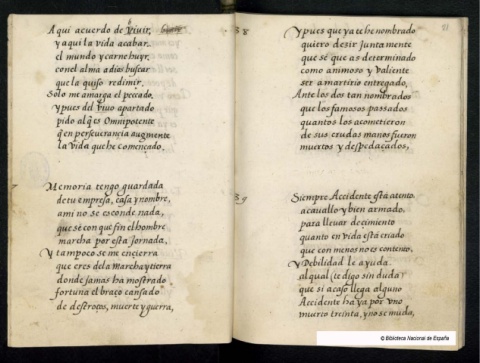 Aqui acuerdo de vivir,
y aqui la vida acabar.
el mundo y carne huyr.
con el alma a dios buscar
que la quiso redimir.
Solo me amarga el peccado.
y pues del vivo apartado
pido alq̃ es Omnipotente
q̃ en perseuerancia augmente
la vida que he començado.
Memoria tengo guardada
de tu empresa, casa y nombre,
a mi no se esconde nada,
que se con que fin el hombre
marcha por esta jornada,
Y tampoco se me encierra
que eres de la Marcha y tierra
donde jamas ha mostrado
fortuna el braço cansado
de destroços, muerte y guerra,
58
Y pues que ya te he nombrado
quiero desir juntamente
que sé que as determinado
como animoso y valiente
ser a martirio entregado,
Ante los dos tan nombrados
que los famosos passados
quantos los acometieron
de sus crudas manos fueron
muertos y despedaçados,
59
Siempre Accidente está atento
a cauallo y bien armado.
para lleuar de cimiento
quanto en vida está criado
que con menos no es contento,
Y Debilidad le ayuda.
al qual (te digo sin duda)
que si acaso llega alguno
Accidente ha ya por uno
muerto treinta, y no se muda,
© Biblioteca Nacional de España